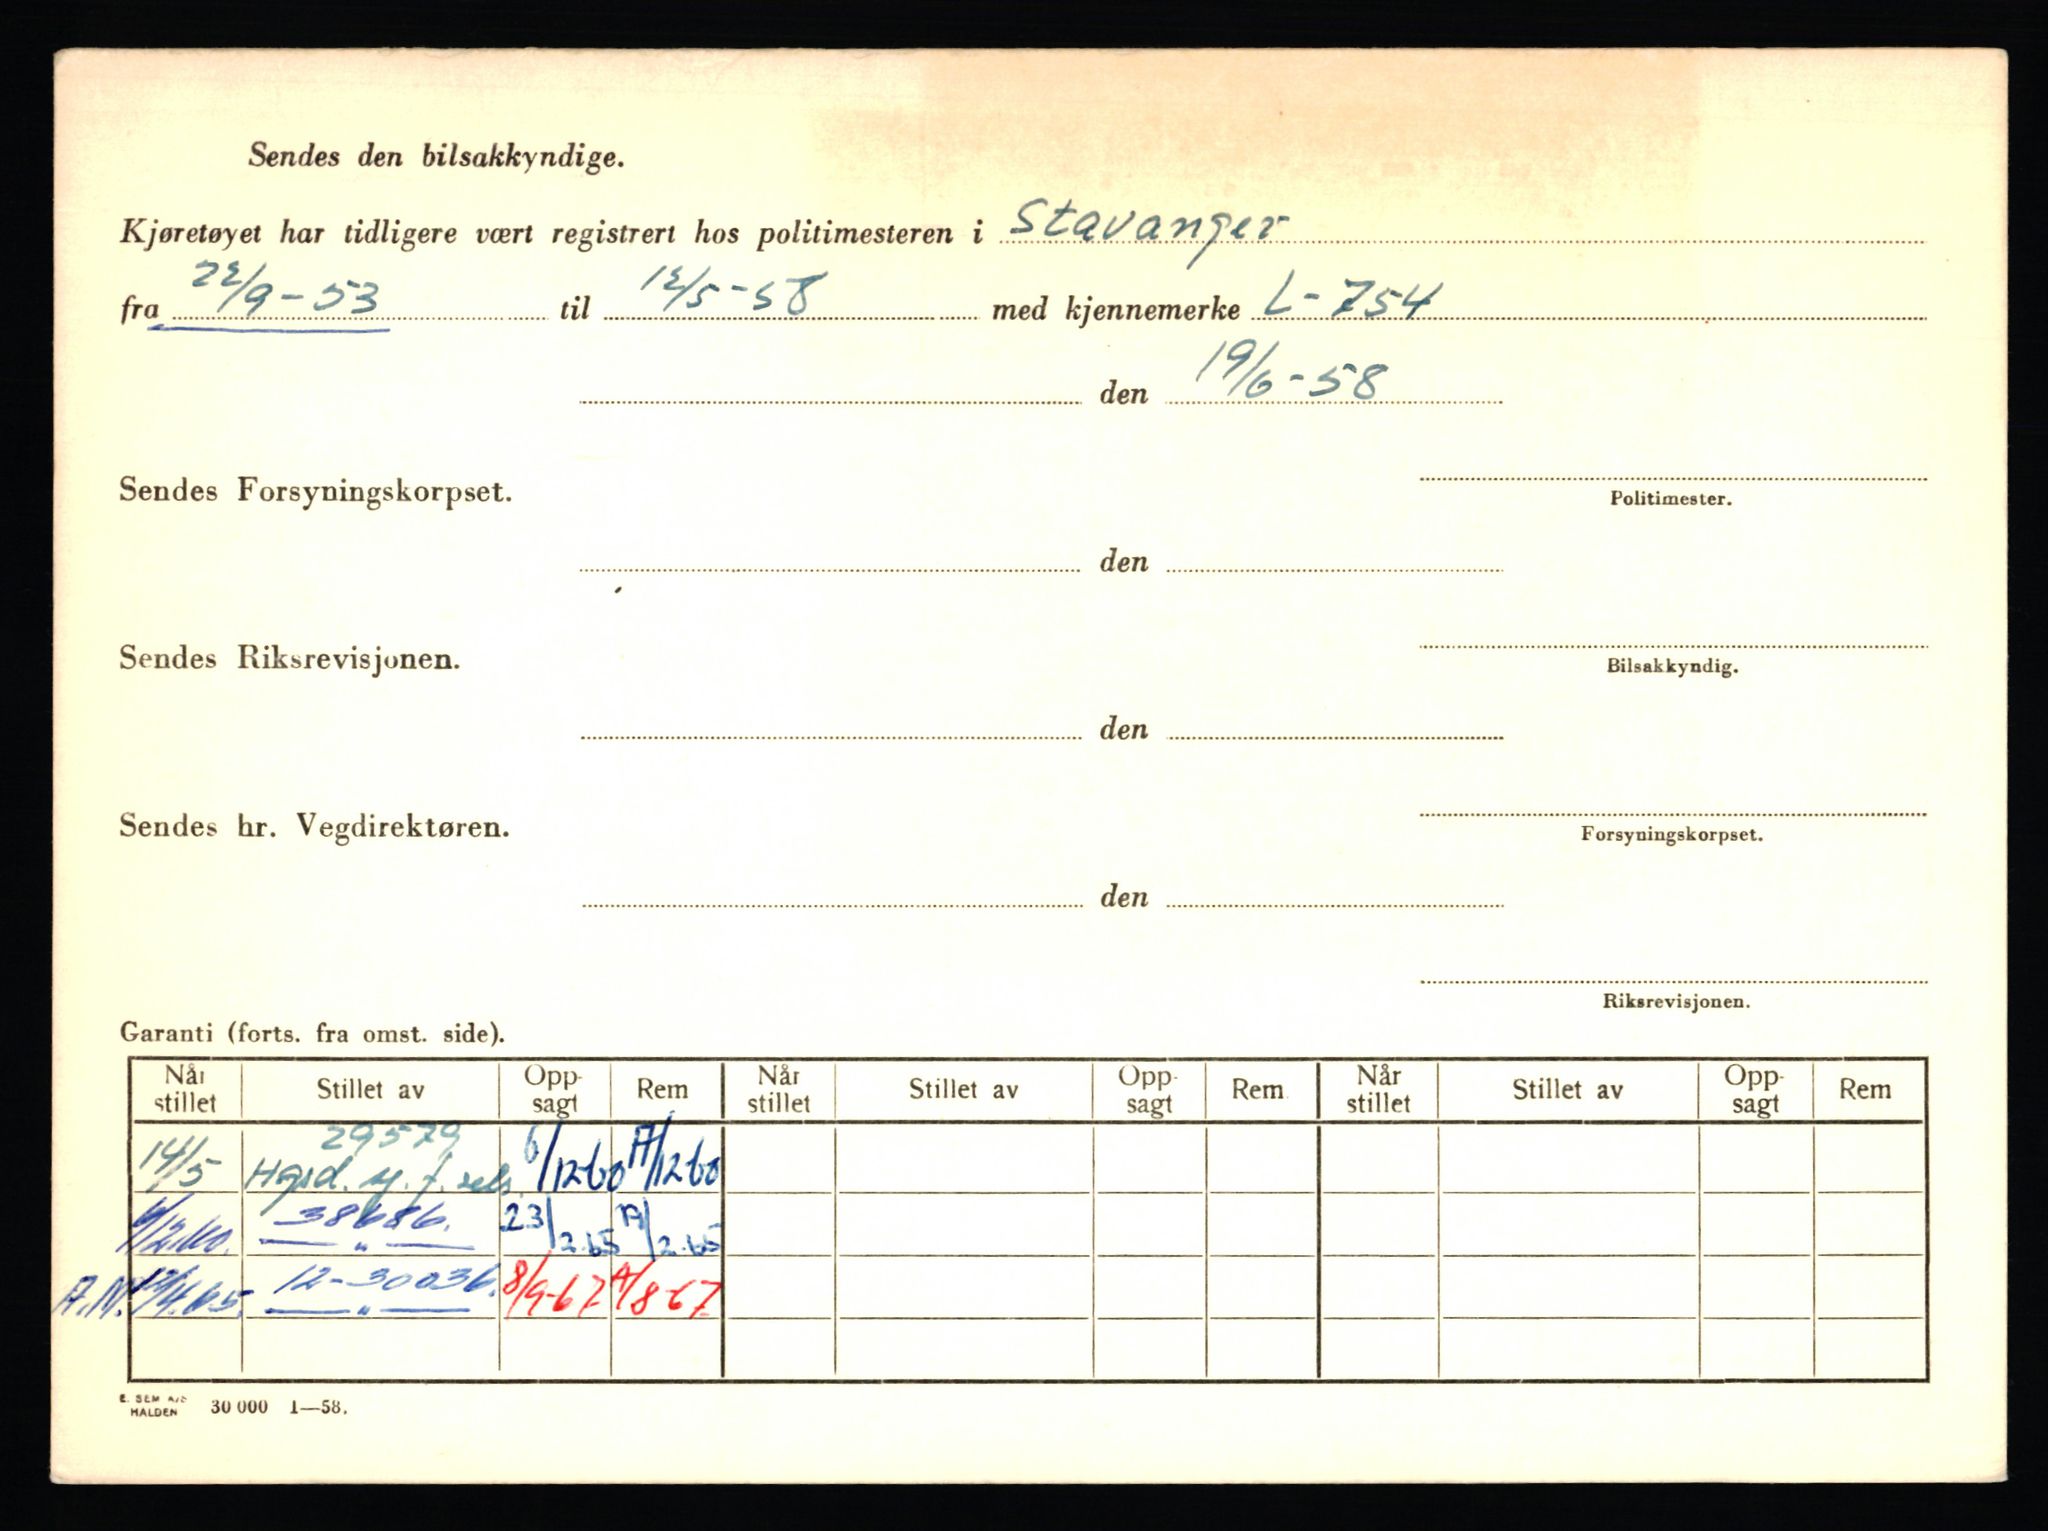 Sendes den bilsakkyndige.
Kjøretøyet har tidligere vært registrert hos politimesteren i Stavanger
fra 22/9-53 til 12/5-58 med kjennemerke L-754
den 19/6-58
Sendes Forsyningskorpset.
Politimester.
den
Sendes Riksrevisjonen.
Bilsakkyndig.
den
Sendes hr. Vegdirektøren.
Forsyningskorpset.
den
Riksrevisjonen.
Garanti (forts. fra omst. side).
Når stillet Stillet av Opp- sagt Rem Når stillet Stillet av Opp- sagt Rem Når stillet Stillet av Opp- sagt Rem
29579
14/5 6/12-60 A/12-60
6/12.60. 38686. 23/2.65 A/2.65
— " —
A.N. 12/4.65. 12-30036. 8/9-67. A/8-67.
— " —
E. SEM A/S
HALDEN 30 000 1—58.